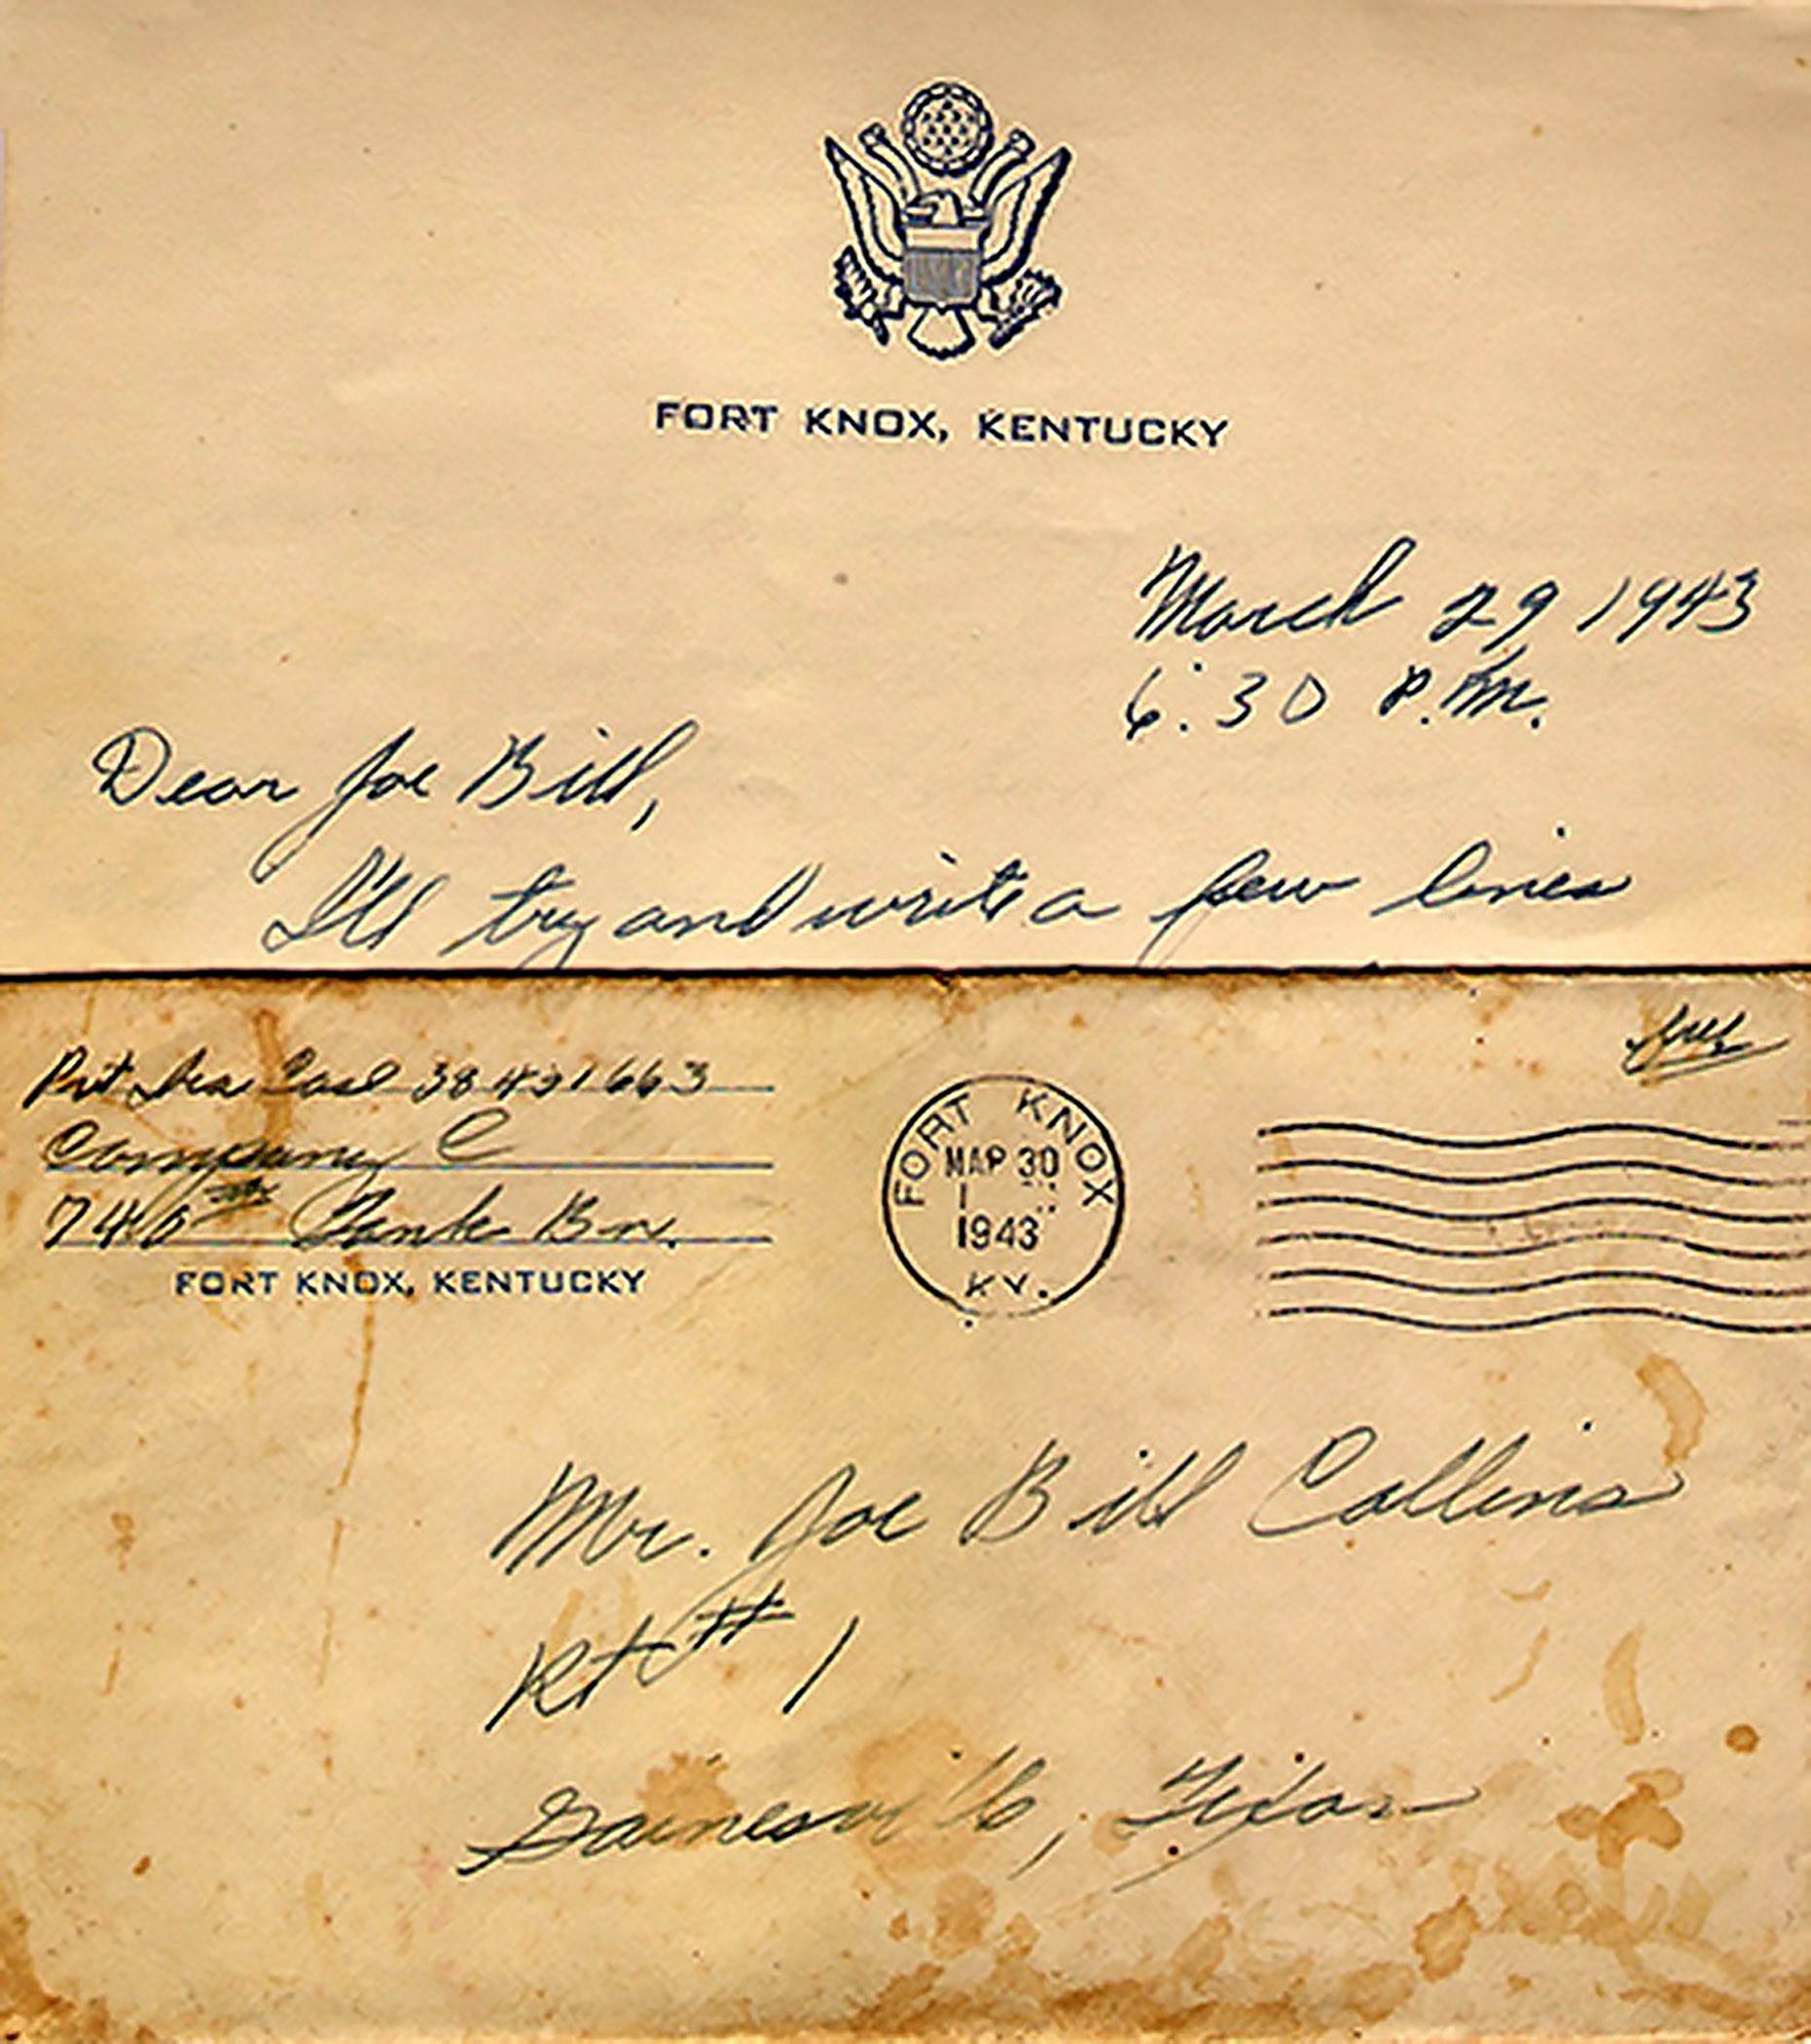 FORT KNOX, KENTUCKY
March 29 1943
6:30 P.M.
Dear Joe Bill,
I'll try and write a few lines
Pvt Ira Case 38431663
Company C
746th Tank Bn.
FORT KNOX, KENTUCKY
FORT KNOX
MAR 30
1943
KY.
Free
Mr. Joe Bill Collins
Rt # 1
Gainesville, Texas